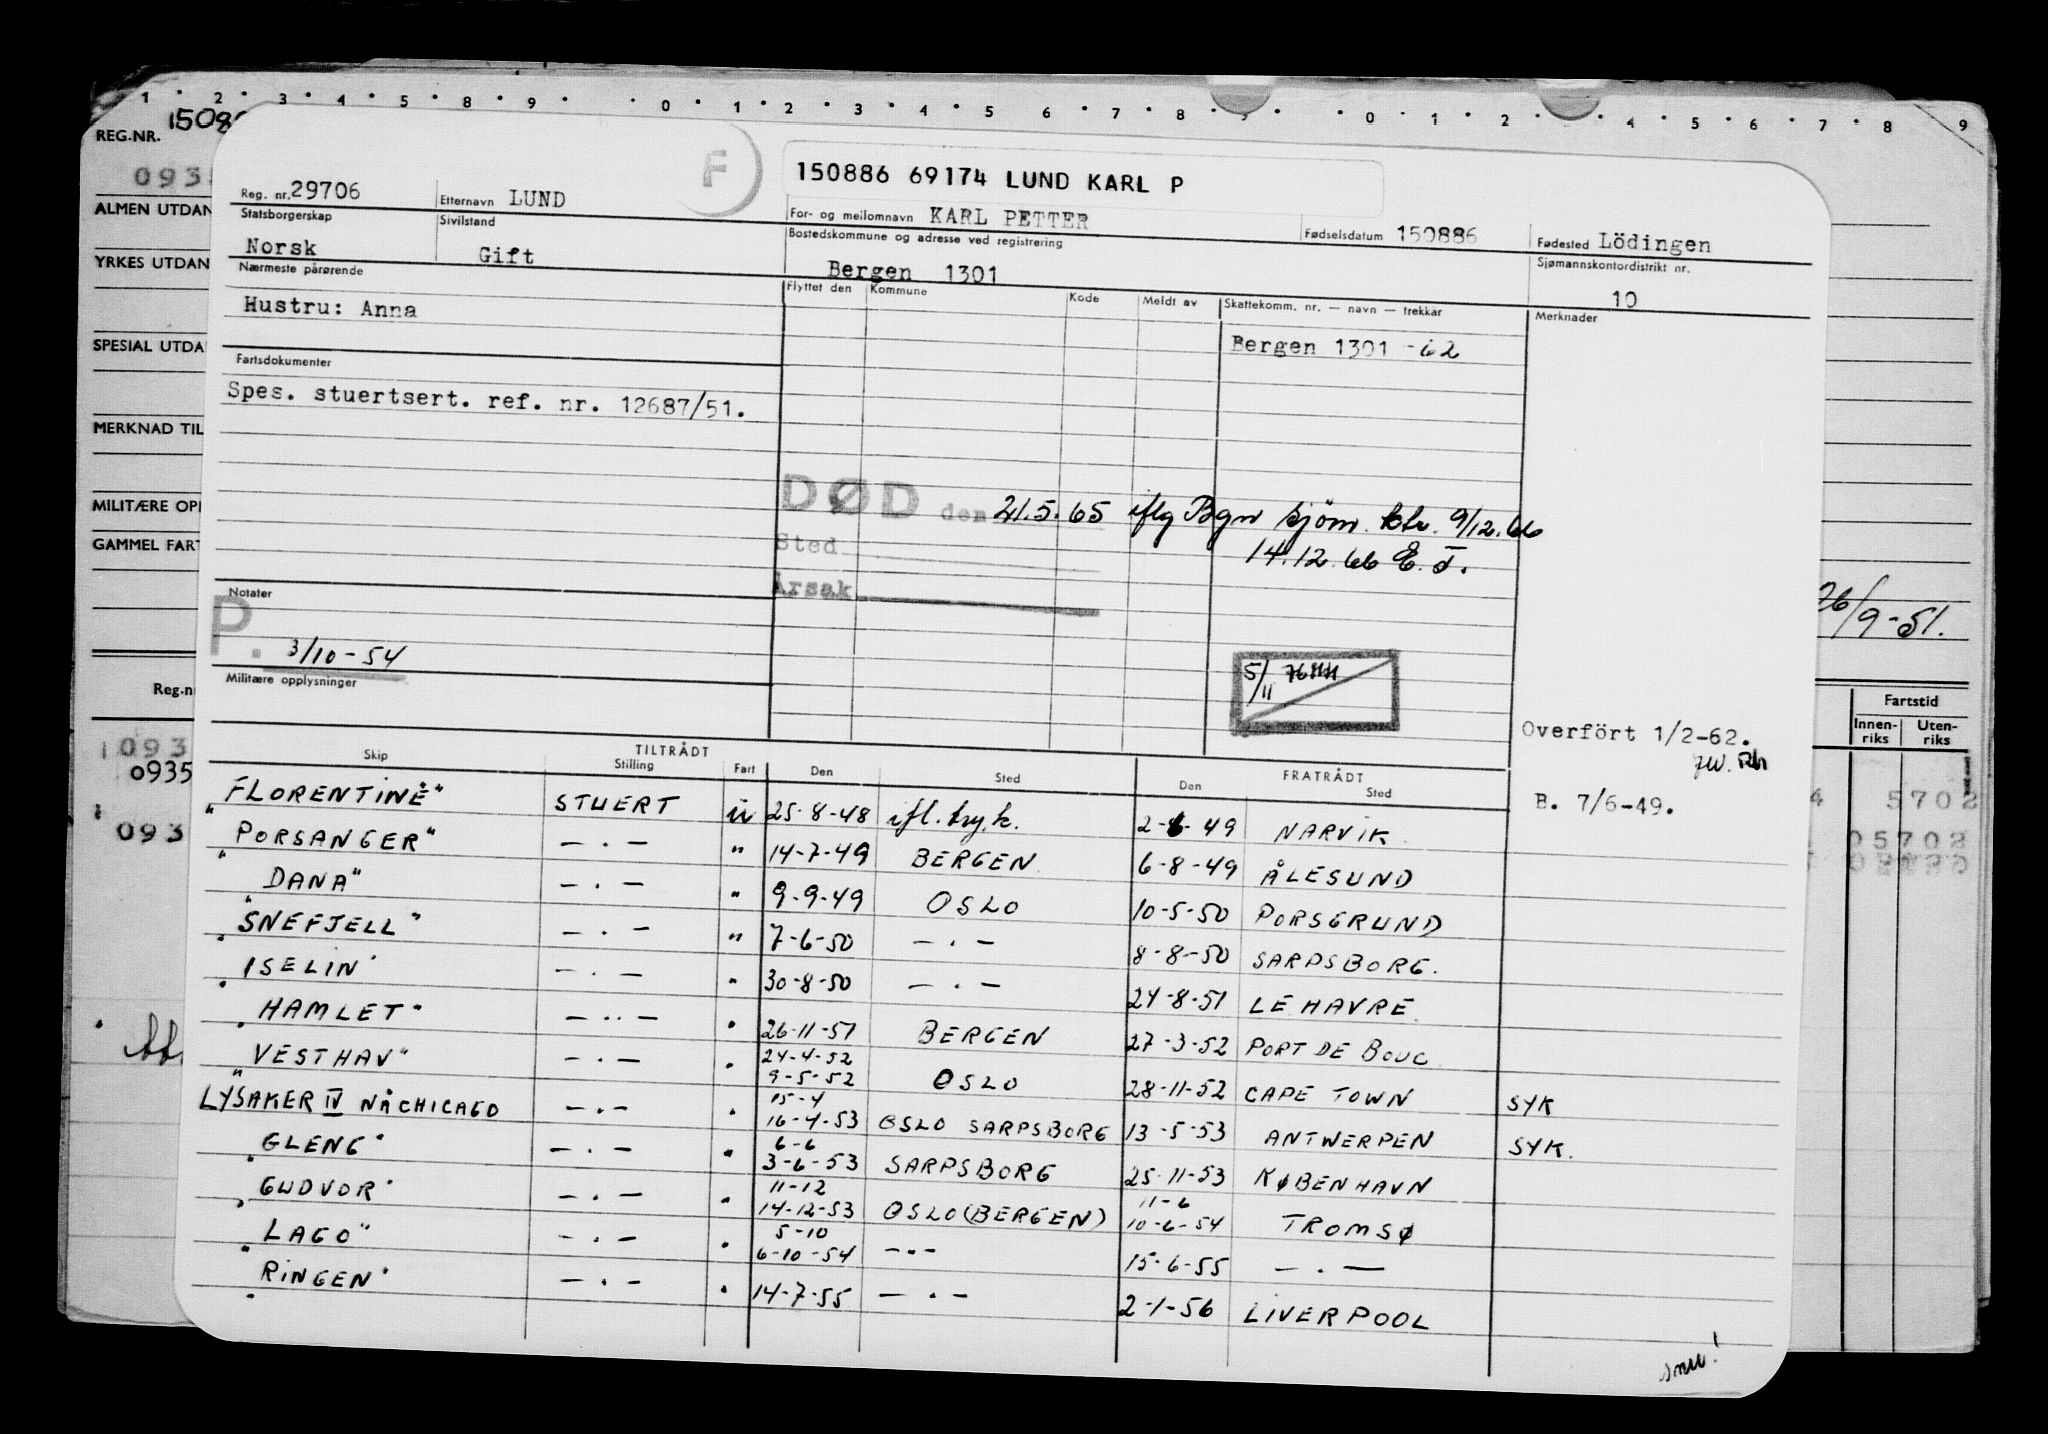 1 · 2 · 3 · 4 · 5 · 8 · 9 · · 0 · 1 · 2 · 3 · 4 · 5 6 · 7 · 8 · 9 · · 0 · 1 · 2 · 4 · 5 · 6 · 7 · 8 9
REG.NR. 1508
093
ALMEN UTDAN
YRKES UTDAN
SPESIAL UTDA
MERKNAD TIL
MILITÆRE OPP
GAMMEL FART
Reg.n
1093
0935
093
26/9-51.
Fartstid
Innen-riks Uten-riks
4 5702
05702
F
150886 69174 LUND KARL P
Reg. nr. 29706 Etternavn LUND For- og mellomnavn KARL PETTER Fødselsdatum 150886 Fødested Lödingen
Statsborgerskap Norsk Sivilstand Gift Bostedskommune og adresse ved registrering Bergen 1301 Sjømannskontordistrikt nr. 10
Nærmeste pårørende Flyttet den Kommune Kode Meldt av Skattekomm. nr. — navn — trekkar Merknader
Hustru: Anna
Bergen 1301 -62
Fartsdokumenter
Spes. stuertsert. ref. nr. 12687/51.
DØD den 21.5.65 iflg Bgn sjøm. ktr. 9/12.66
Sted 14.12.66 E. T.
Årsak
Notater
P. 3/10-54
5/11
Militære opplysninger
Overfört 1/2-62.
B. 7/6-49.
TILTRÅDT FRATRÅDT
Skip Stilling Fart Den Sted Den Sted
"FLORENTINE" STUERT u 25-8-48 ifl. 2-6-49 NARVIK
"PORSANGER" — . — " 14-7-49 BERGEN 6-8-49 ÅLESUND
"DANA" — . — " 9-9-49 OSLO 10-5-50 PORSGRUND
"SNEFJELL" — . — " 7-6-50 — . — 8-8-50 SARPSBORG.
"ISELIN" — . — " 30-8-50 — . — 24-8-51 LE HAVRE
"HAMLET" — .. — " 26-11-51 BERGEN 27-3-52 PORT DE BOUC
"VESTHAV" — . — " 24-4-52 9-5-52 OSLO 28-11-52 CAPE TOWN SYK
LYSAKER IV NÅ CHICAGO — . — " 15-4 16-4-53 OSLO SARPSBORG 13-5-53 ANTWERPEN SYK.
"GLENG" — . — " 6-6 3-6-53 SARPSBORG 25-11-53 KØBENHAVN
"GUDVOR" — . — " 11-12 14-12-53 OSLO (BERGEN) 11-6 10-6-54 TROMSØ
"LAGO" — . — " 5-10 6-10-54 — " — 15-6-55 — . —
"RINGEN" — . — " 14-7-55 — . — 2-1-56 LIVERPOOL
snu!